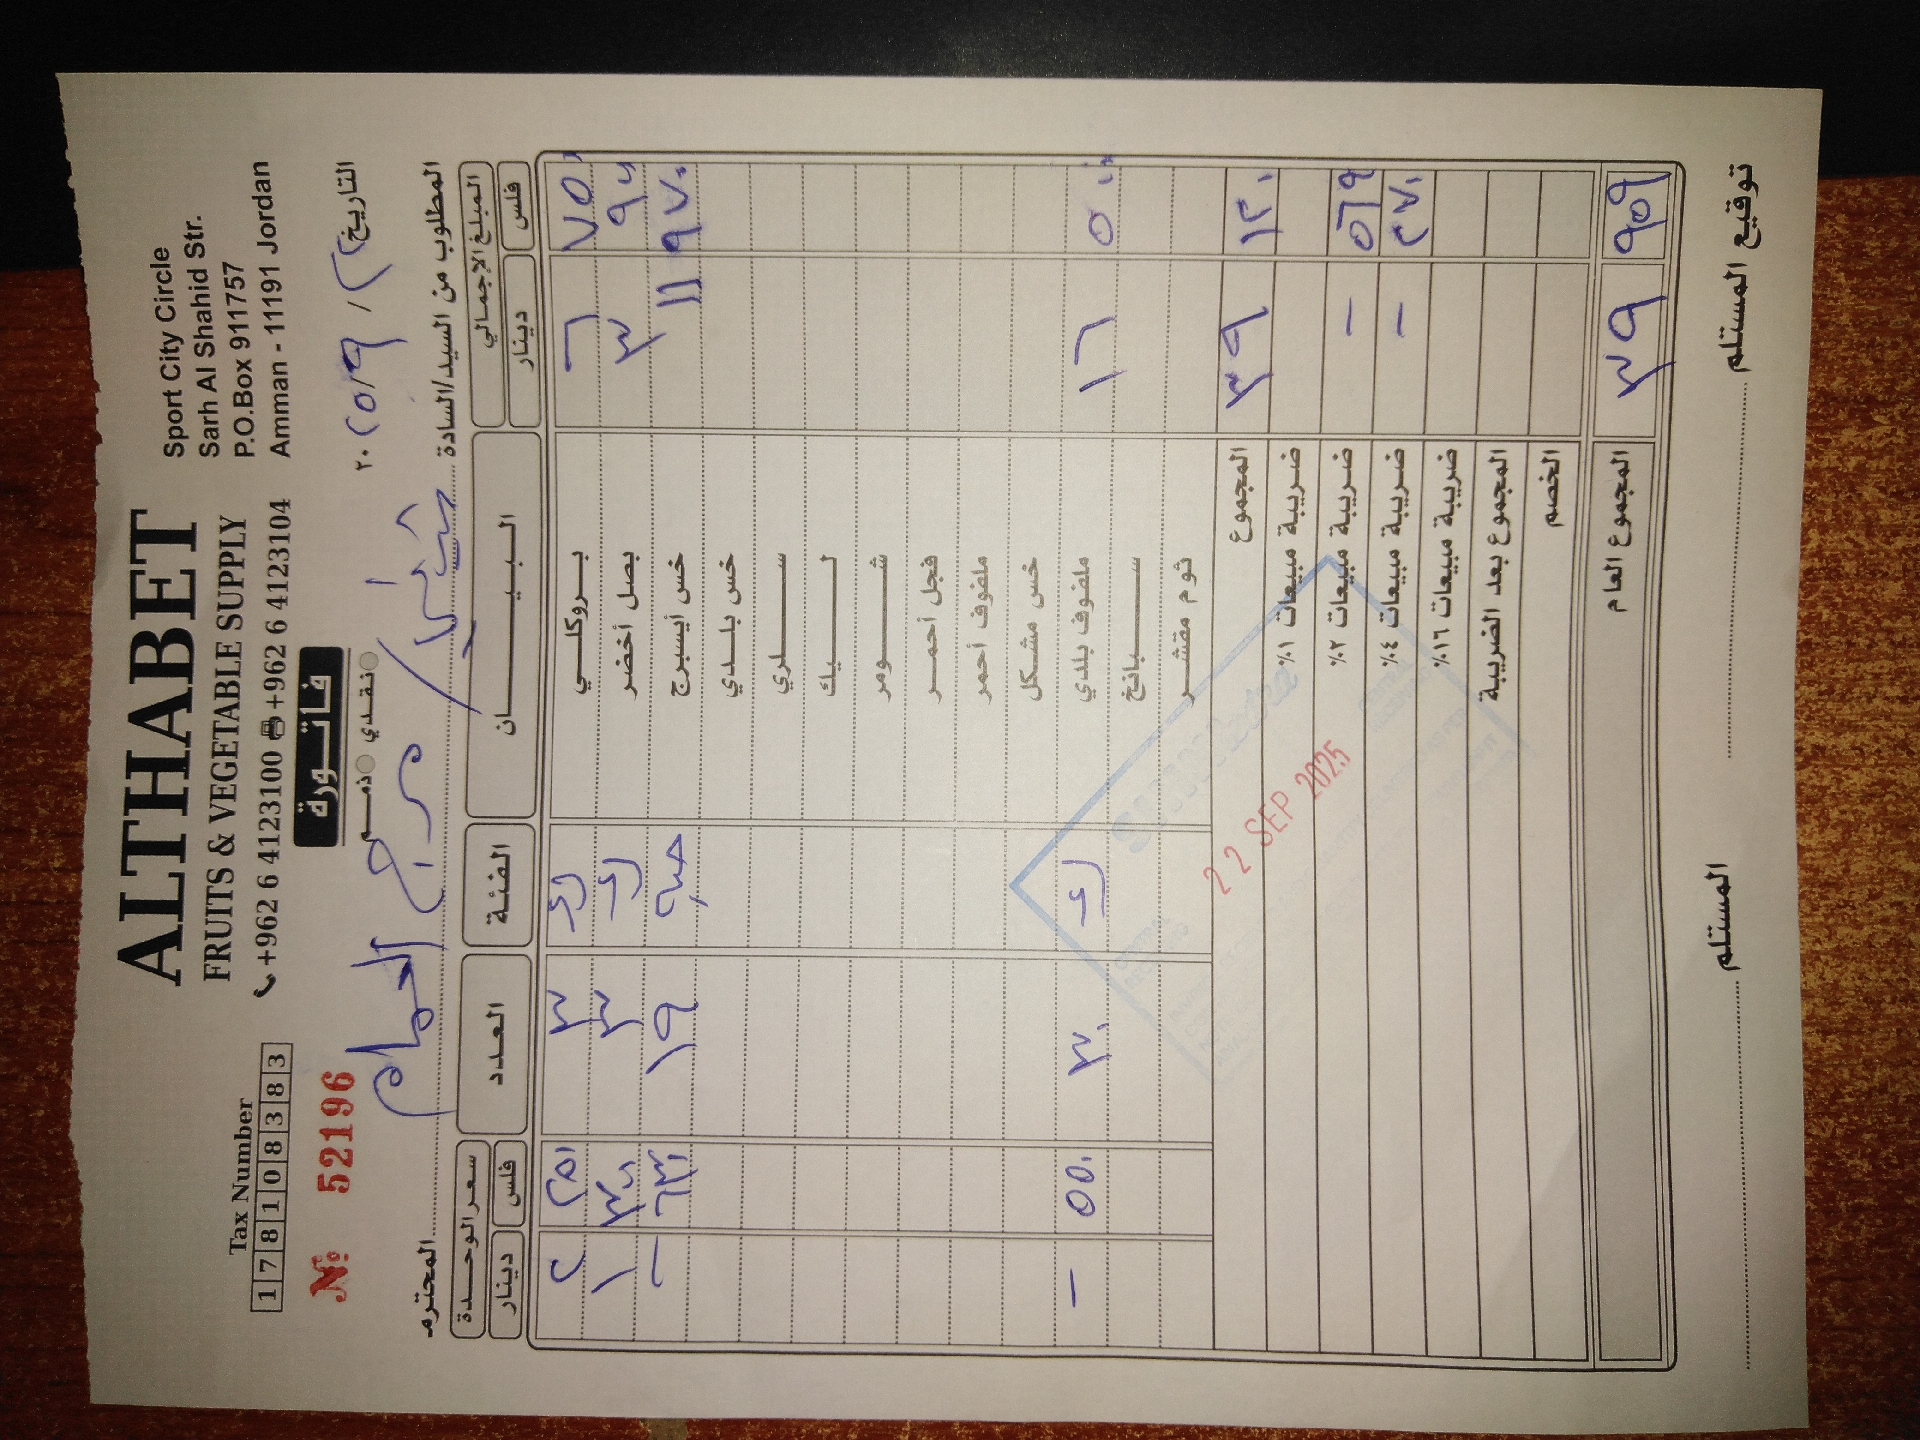 ALTHABET
FRUITS & VEGETABLE SUPPLY
+962 6 4123100 +962 6 4123104
Sport City Circle
Sarh Al Shahid Str.
P.O.Box 911757
Amman - 11191 Jordan
Tax Number
178108383
№ 52196
فاتورة
ذمم نقدي
التاريخ / ٩ / ٢٠٢٥
المطلوب من السيد/السادة المحترم
مرج الحمام /
المبلغ الإجمالي البيان الفئة العدد سعر الوحدة
دينار فلس دينار فلس
٦ ٧٥٠ بروكلي ك ٣ ٢ ٢٥٠
٣ ٩ بصل أخضر ك ٣ ١ ٣
١١ ٩٧٠ خس أيسبرج حبة ١٩ - ٦٣٠
خس بلدي
سلري
ليك
شومر
فجل أحمر
ملفوف أحمر
خس مشكل
١٦ ٥٠٠ ملفوف بلدي ك ٣٠ - ٥٥٠
سبانخ
ثوم مقشر
٣٩ ١٢٠ المجموع
ضريبة مبيعات ١٪
- ٥٦٩ ضريبة مبيعات ٢٪
- ٢٧٠ ضريبة مبيعات ٤٪
ضريبة مبيعات ١٦٪
المجموع بعد الضريبة
الخصم
٣٩ ٩٥٩ المجموع العام
22 SEP 2025
توقيع المستلم المستلم